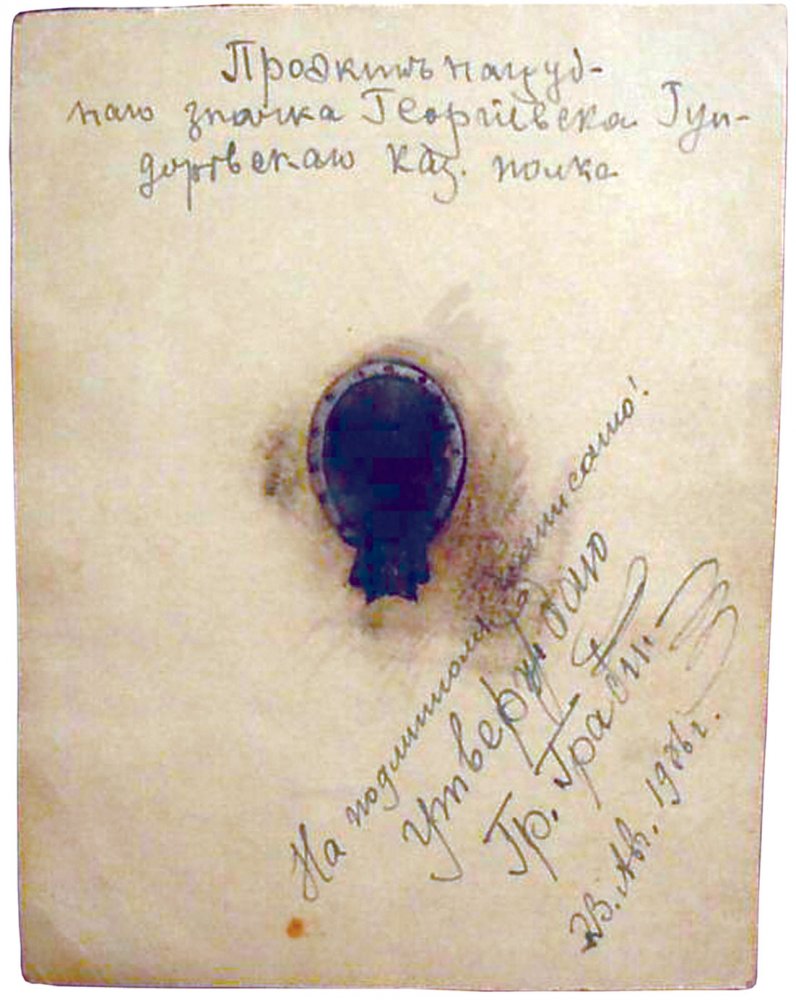 Проэктъ нагруд-
наго значка Георгіевска Гун-
доровскаго каз. полка
На подлинномъ написано!
Утверждаю
Гр. Граббе
23. Авг.